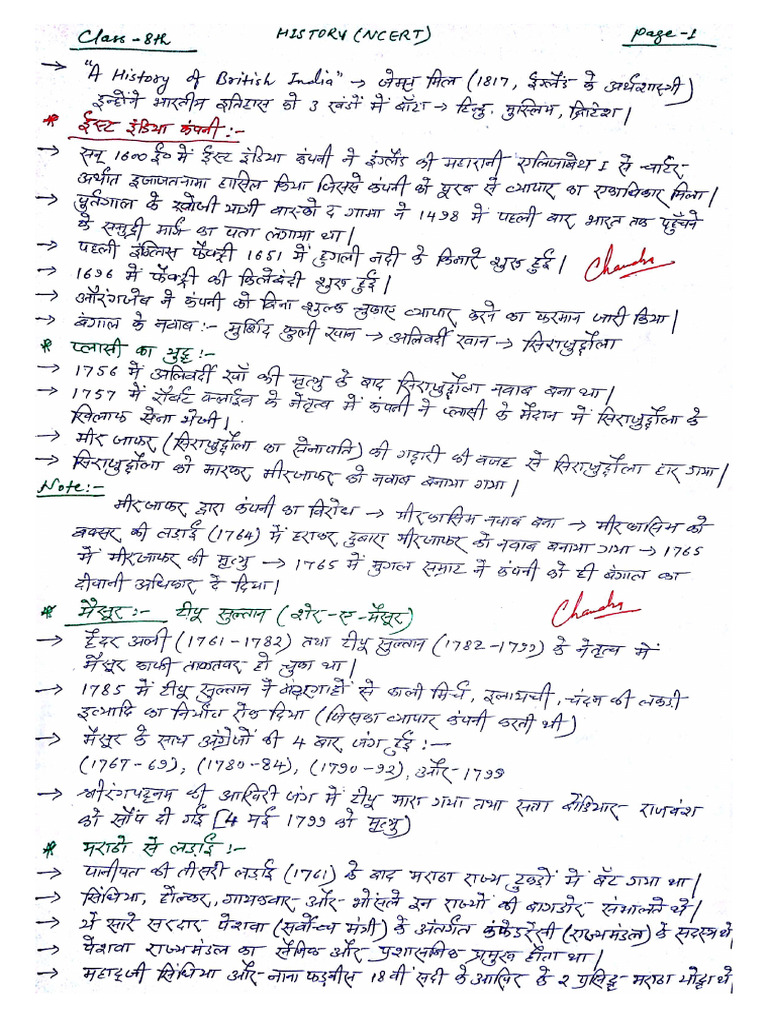 Class-8th HISTORY (NCERT) Page-1
→ "A History of British India" → जेम्स मिल (1817, इंग्लैंड के अर्थशास्त्री)
इन्होंने भारतीय इतिहास को 3 खंडों में बाँटा → हिन्दु, मुस्लिम, ब्रिटिश।
* ईस्ट इंडिया कंपनी :-
→ सन् 1600 ई० में ईस्ट इंडिया कंपनी ने इंग्लैंड की महारानी एलिजाबेथ I से चार्टर
अर्थात इजाजतनामा हासिल किया जिससे कंपनी को पूरब से व्यापार का एकाधिकार मिला।
→ पुर्तगाल के खोजी यात्री वास्को द गामा ने 1498 में पहली बार भारत तक पहुँचने
के समुद्री मार्ग का पता लगाया था।
→ पहली इंग्लिश फैक्ट्री 1651 में हुगली नदी के किनारे शुरू हुई। Chandra
→ 1696 में फैक्ट्री की किलेबंदी शुरू हुई।
→ औरंगजेब ने कंपनी को बिना शुल्क चुकाए व्यापार करने का फरमान जारी किया।
→ बंगाल के नवाब :- मुर्शिद कुली खान → अलिवर्दी खान → सिराजुद्दौला
* प्लासी का युद्ध :-
→ 1756 में अलिवर्दी खाँ की मृत्यु के बाद सिराजुद्दौला नवाब बना था।
→ 1757 में रॉबर्ट क्लाईव के नेतृत्व में कंपनी ने प्लासी के मैदान में सिराजुद्दौला के
खिलाफ सेना भेजी।
→ मीर जाफर (सिराजुद्दौला का सेनापति) की गद्दारी की वजह से सिराजुद्दौला हार गया।
→ सिराजुद्दौला को मारकर मीरजाफर को नवाब बनाया गया।
Note:-
मीरजाफर द्वारा कंपनी का विरोध → मीरकासिम नवाब बना → मीरकासिम को
बक्सर की लड़ाई (1764) में हराकर दुबारा मीरजाफर को नवाब बनाया गया → 1765
में मीरजाफर की मृत्यु → 1765 में मुगल सम्राट ने कंपनी को ही बंगाल का
दीवानी अधिकार दे दिया।
* मैसूर :- टीपू सुल्तान (शेर-ए-मैसूर) Chandra
→ हैदर अली (1761-1782) तथा टीपू सुल्तान (1782-1799) के नेतृत्व में
मैसूर काफी ताकतवर हो चुका था।
→ 1785 में टीपू सुल्तान ने बंदरगाहों से काली मिर्च, इलायची, चंदन की लकड़ी
इत्यादि का निर्यात रोक दिया (जिसका व्यापार कंपनी करती थी)
→ मैसूर के साथ अंग्रेजों की 4 बार जंग हुई :-
(1767-69), (1780-84), (1790-92), और 1799
→ श्रीरंगपट्टनम की आखिरी जंग में टीपू मारा गया तथा सत्ता वोडियार राजवंश
को सौंप दी गई [4 मई 1799 को मृत्यु)
* मराठों से लड़ाई :-
→ पानीपत की तीसरी लड़ाई (1761) के बाद मराठा राज्य टुकड़ों में बँट गया था।
→ सिंधिया, होल्कर, गायकवार और भोंसले इन राज्यों की बागडोर संभालते थे।
→ ये सारे सरदार पेशवा (सर्वोच्च मंत्री) के अंतर्गत कंफेडरेसी (राज्यमंडल) के सदस्य थे
→ पेशवा राज्यमंडल का सैनिक और प्रशासनिक प्रमुख होता था।
→ महादजी सिंधिया और नाना फडनीस 18वीं सदी के आखिर के 2 प्रसिद्ध मराठा योद्धा थे